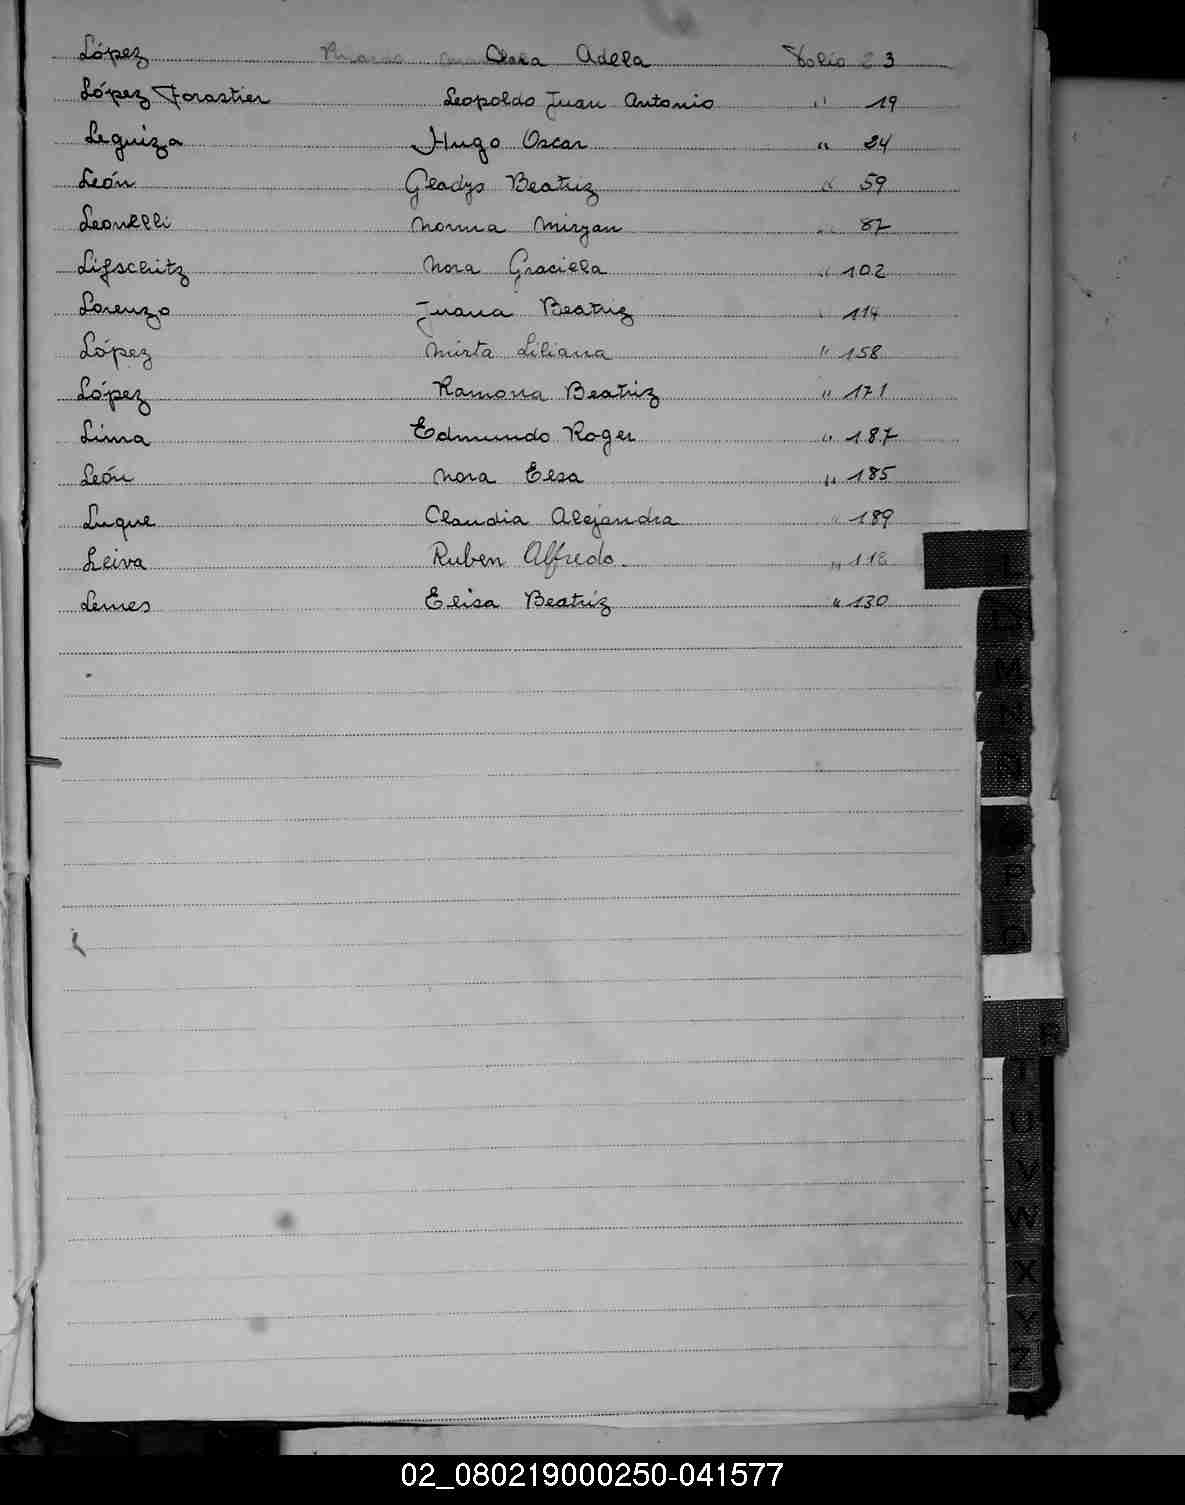 López Clara Adela Folio 23
López Forastier Leopoldo Juan Antonio " 19
Leguiza Hugo Oscar " 24
León Gladys Beatriz " 59
Leonelli Norma Miryan " 87
Lifschitz Nora Graciela " 102
Lorenzo Juana Beatriz " 114
López Mirta Liliana " 158
López Ramona Beatriz " 171
Lima Edmundo Roger " 187
León Nora Elsa " 185
Luque Claudia Alejandra " 189
Leiva Ruben Alfredo "
Lemes Elisa Beatriz " 130
L
M
N
P
R
T
U
V
W
X
Y
Z
02_080219000250-041577